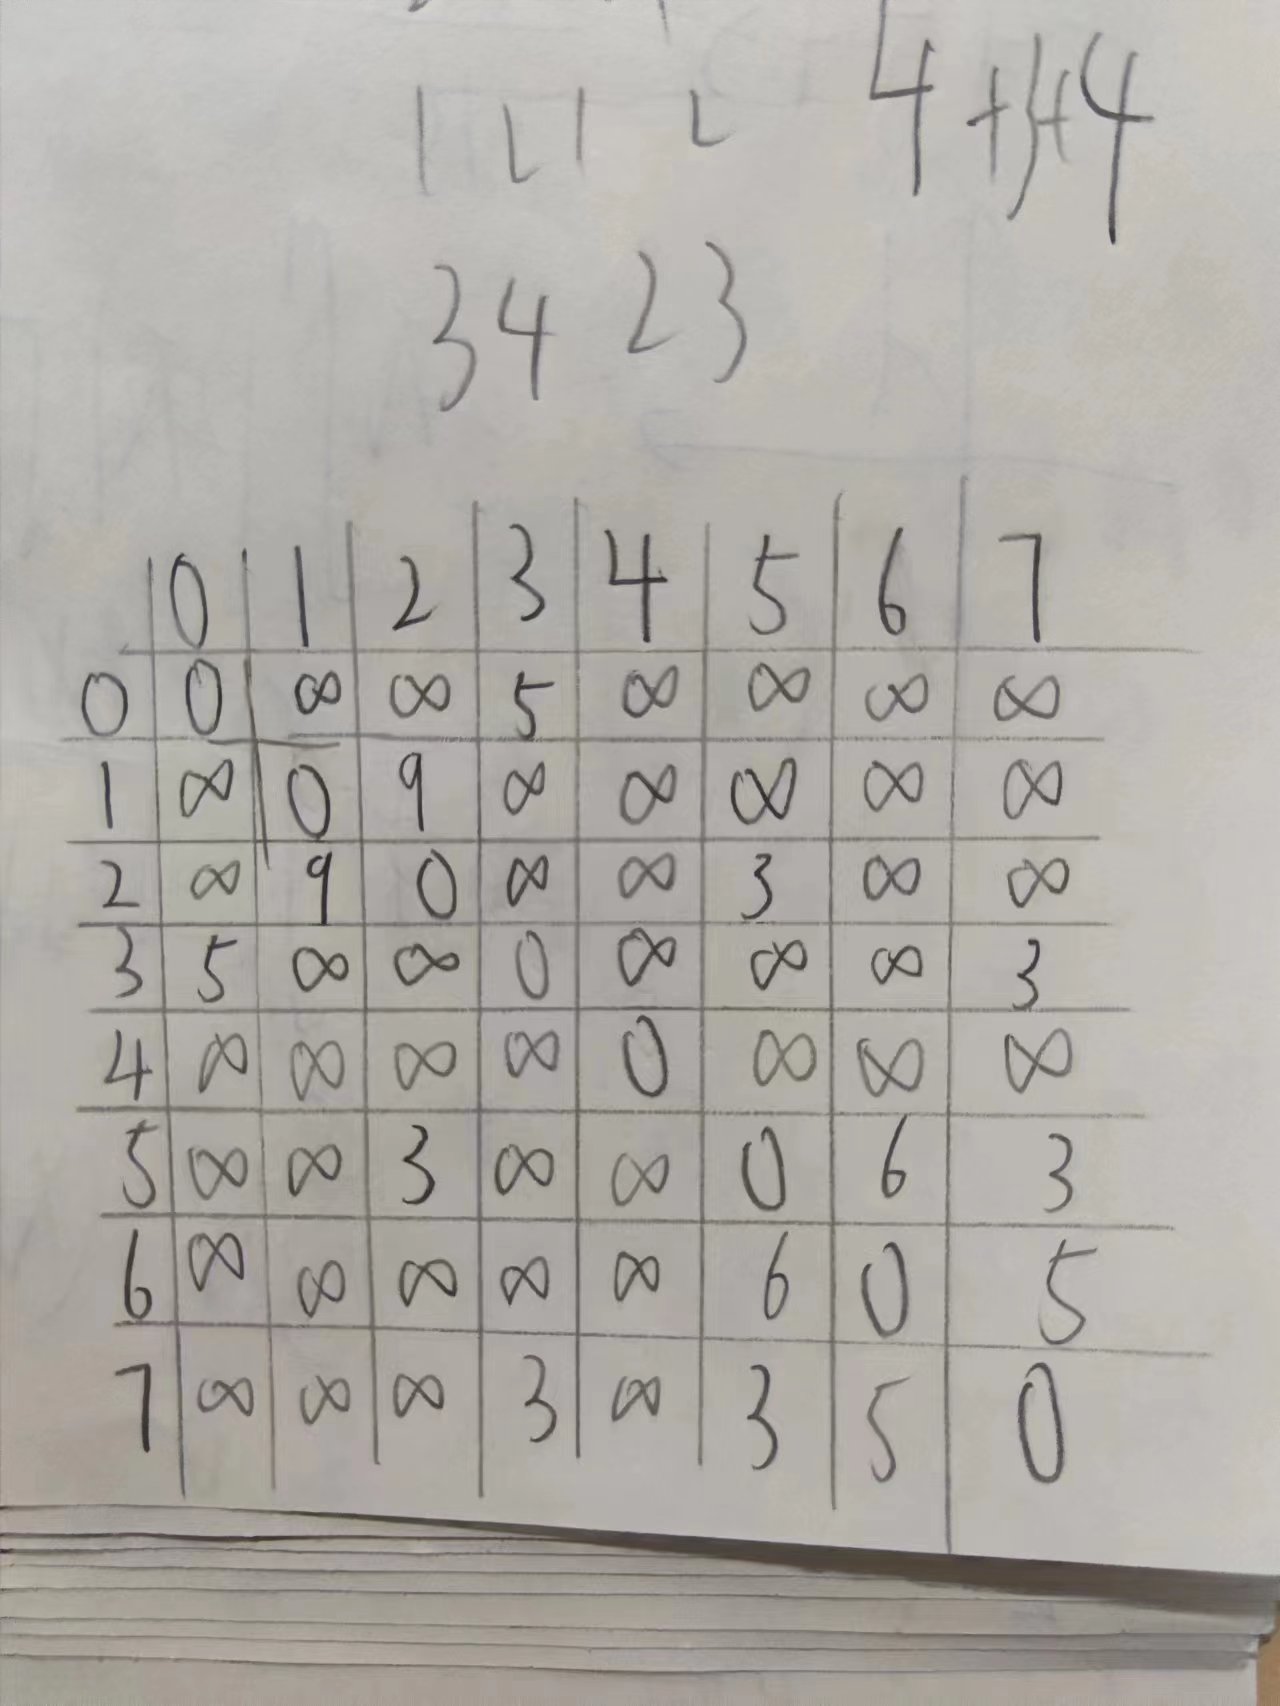 4+3+4
34 23
0 1 2 3 4 5 6 7
0 0 ∞ ∞ 5 ∞ ∞ ∞ ∞
1 ∞ 0 9 ∞ ∞ ∞ ∞ ∞
2 ∞ 9 0 ∞ ∞ 3 ∞ ∞
3 5 ∞ ∞ 0 ∞ ∞ ∞ 3
4 ∞ ∞ ∞ ∞ 0 ∞ ∞ ∞
5 ∞ ∞ 3 ∞ ∞ 0 6 3
6 ∞ ∞ ∞ ∞ ∞ 6 0 5
7 ∞ ∞ ∞ 3 ∞ 3 5 0